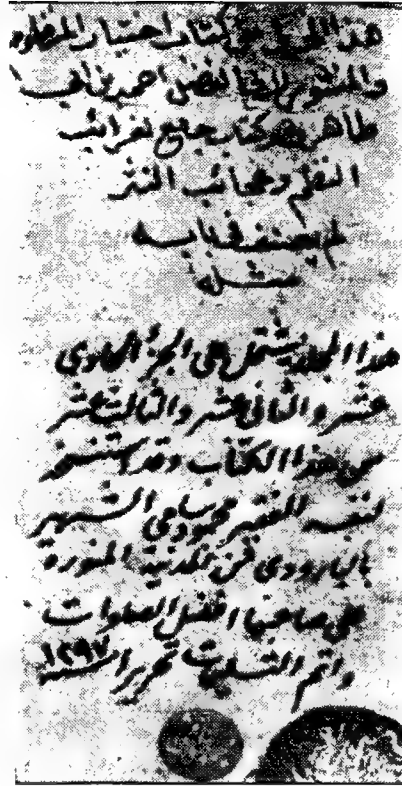 هذا المجلد من كتاب اختيار المنظوم
والمنثور لابى الفضل احمد بن ابى
طاهر وهو كتاب جامع لغرائب
النظم وعجائب النثر
لم يصنف فى بابه
مثله
هذا المجلد يشتمل على الجزء الحادى
عشر والثانى عشر والثالث عشر
من هذا الكتاب وقد استنسخه
لنفسه الفقير محمود سامى الشهير
بالبارودى من المدينة المنورة
على صاحبها افضل الصلوات
واتم التسليمات تحريرا سنة ١٢٩٧